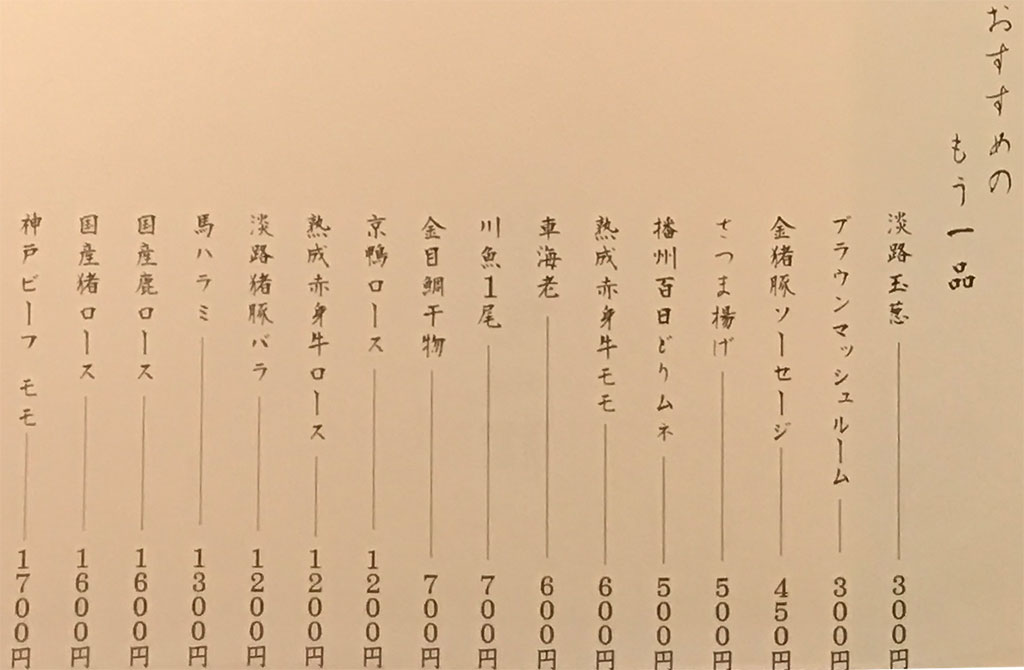 おすすめの
もう一品
淡路玉葱 300円
ブラウンマッシュルーム 300円
金猪豚ソーセージ 450円
さつま揚げ 500円
播州百日どりムネ 500円
熟成赤身牛モモ 600円
車海老 600円
川魚1尾 700円
金目鯛干物 700円
京鴨ロース 1200円
熟成赤身牛ロース 1200円
淡路猪豚バラ 1200円
馬ハラミ 1300円
国産鹿ロース 1600円
国産猪ロース 1600円
神戸ビーフ モモ 1700円